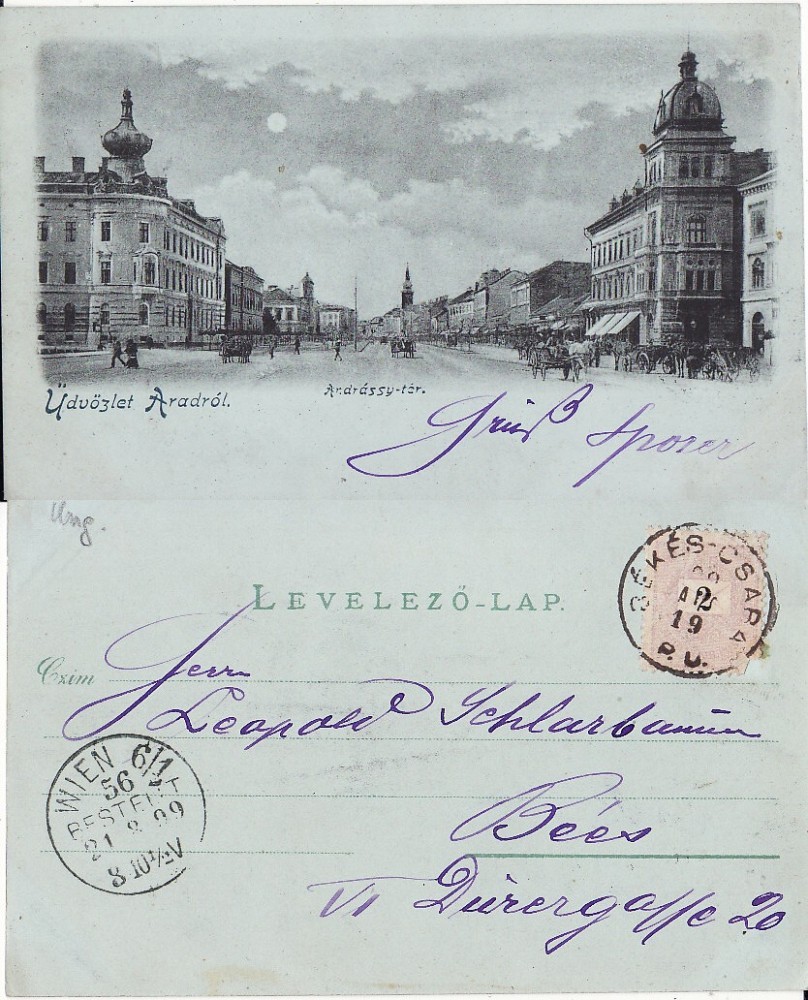 Üdvözlet Aradról.
Andrássy-tér.
Gruß Sporer
Ung.
LEVELEZŐ-LAP.
BÉKÉS-CSABA
99
AUG
19
P. U.
2
Czim
Herrn
Leopold Schlarbaum
Bécs
VI Dürergasse 20
WIEN 6/1
56
BESTELLT
21 8 99
8-10½V